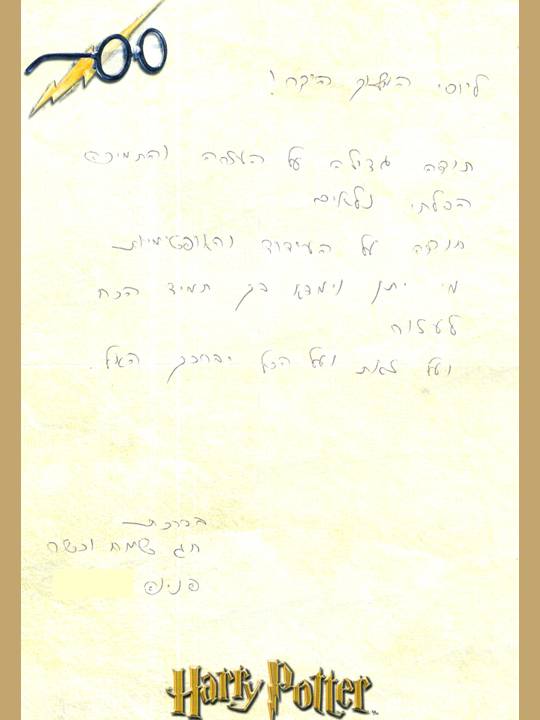 ליוסי המצחיק היקר!
תודה גדולה על העזרה והתמיכה
הבלתי נלאים
תודה על העידוד והאופטימיות
מי יתן וימצא בך תמיד הכח
לעזור
ועל זאת ועל הכל יברכך האל.
בברכת
חג שמח וכשר
פנינה
Harry Potter